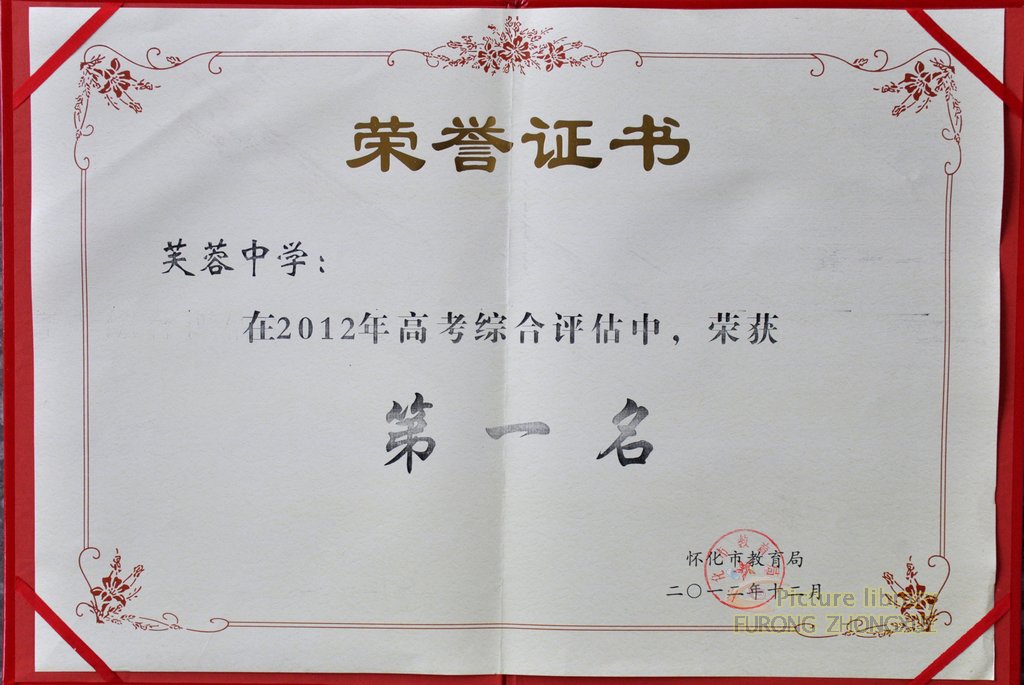 荣誉证书
芙蓉中学：
在2012年高考综合评估中，荣获
第一名
怀化市教育局
二〇一二年十二月
Picture library
FURONG ZHONGXUE